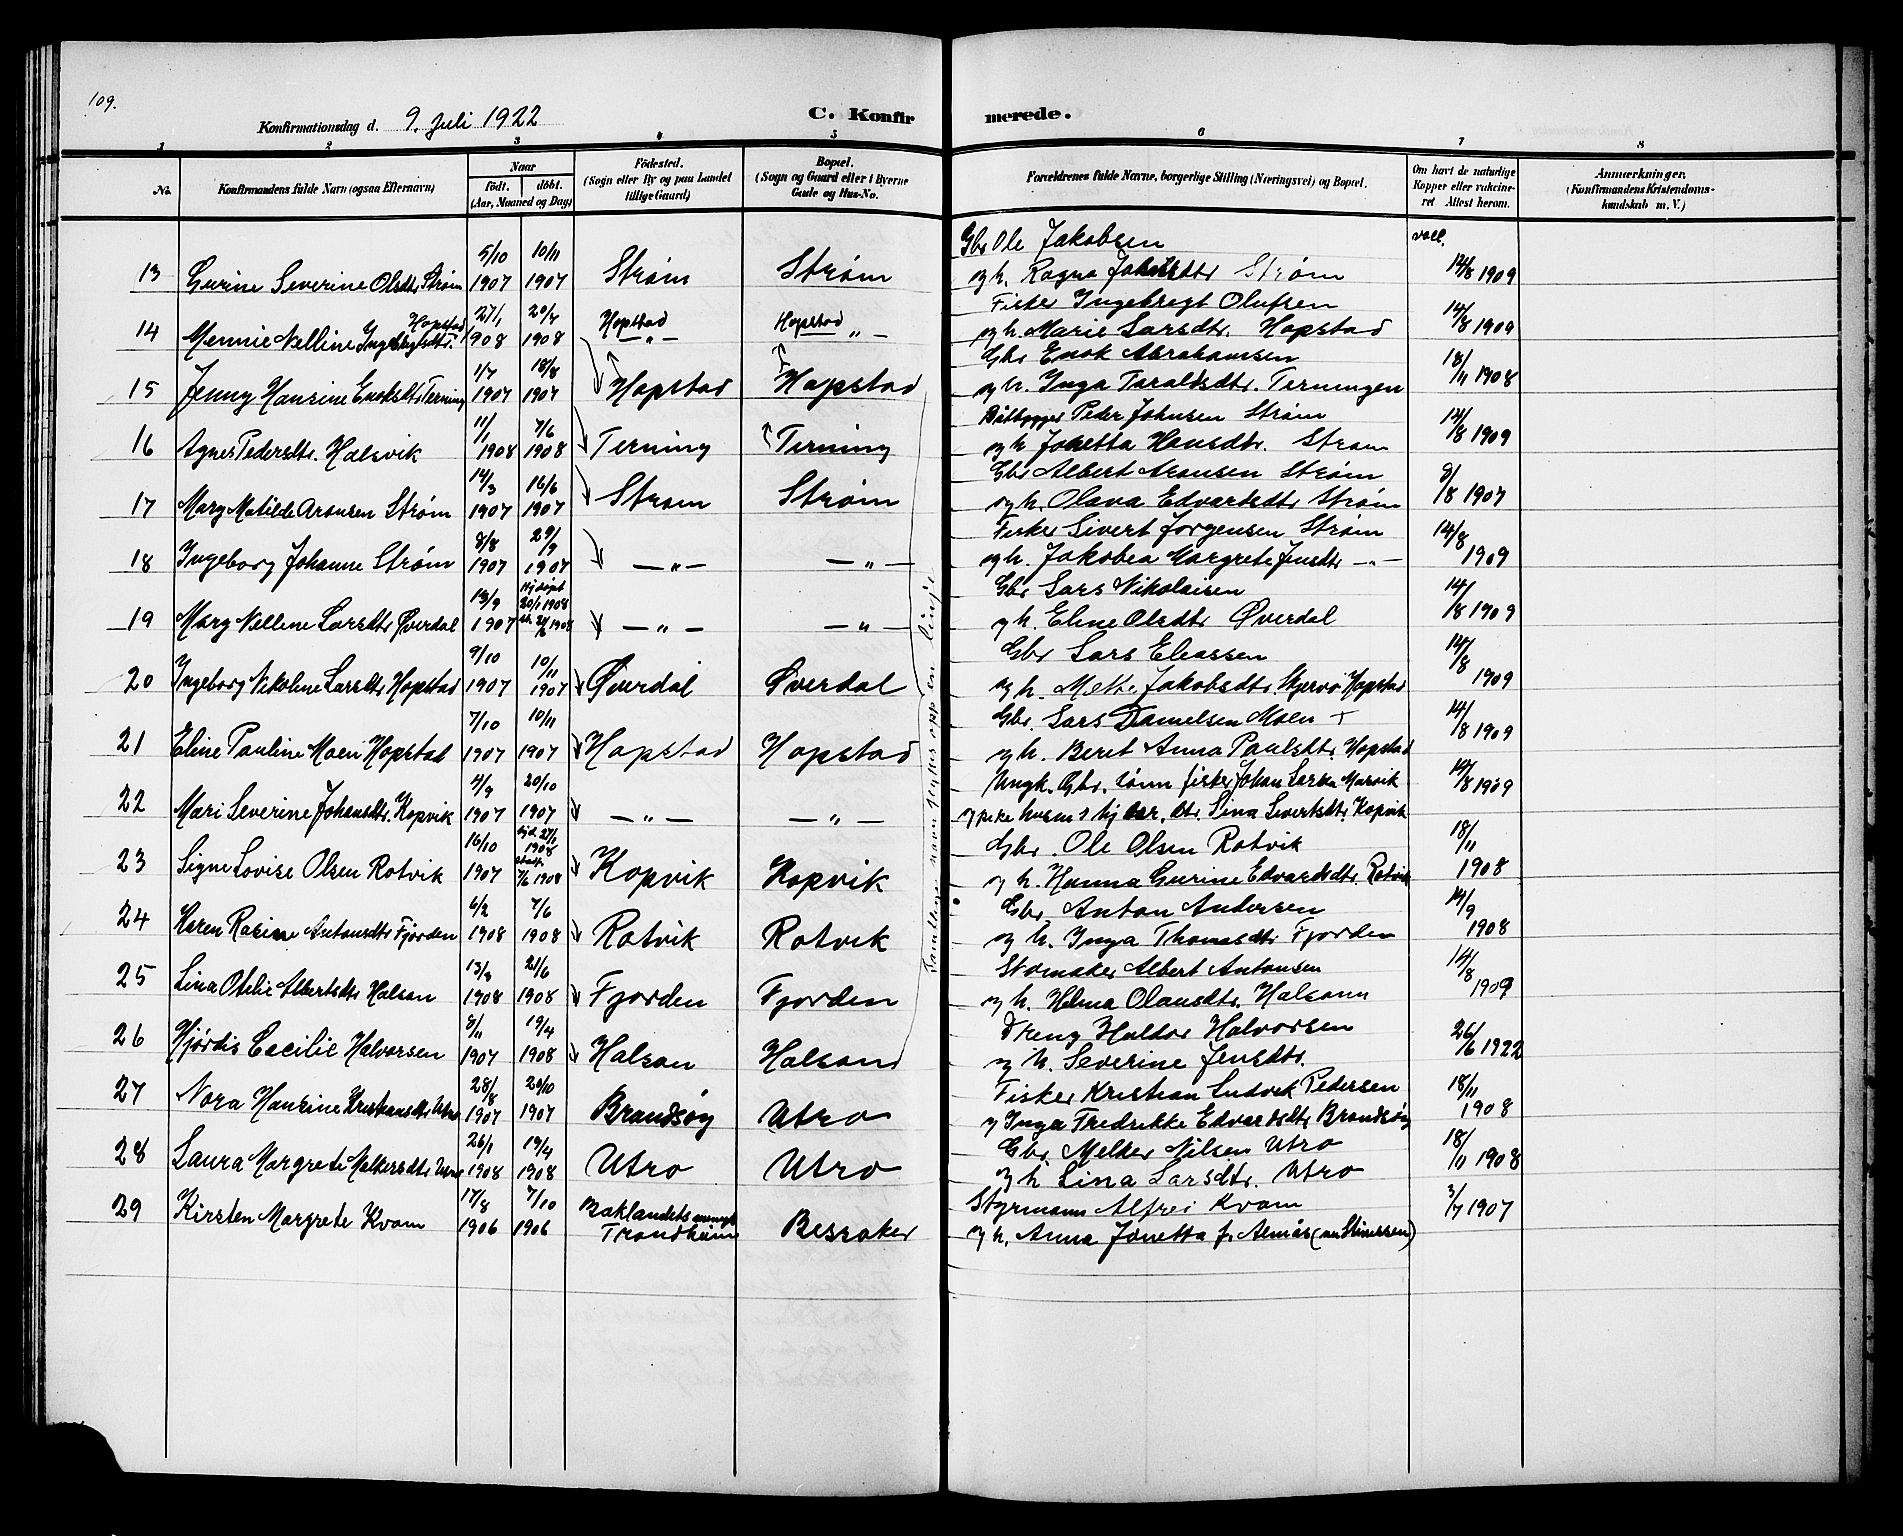 109.
Konfirmationsdag d. 9. Juli 1922
C. Konfirmerede.
1 2 3 4 5 6 7 8
No.
Konfirmandens fulde Navn (ogsaa Efternavn)
Naar
födt. döbt.
(Aar, Maaned og Dag)
Födested.
(Sogn eller By og paa Landet
tillige Gaard)
Bopæl.
(Sogn og Gaard eller i Byerne
Gade og Hus-No.
Forældrenes fulde Navne, borgerlige Stilling (Næringsvei) og Bopæl.
Om havt de naturlige
Kopper eller vakcine-
ret Attest herom.
Anmerkninger.
(Konfirmandens Kristendoms-
kundskab m. V.)
vacc.
13 Gurine Severine Olsdtr Strøm 5/10 1907 10/11 1907 Strøm Strøm
Gbr Ole Jakobsen
og h. Ragna Strøm 14/8 1909
14 Mennie Nelline Hopstad 27/1 1908 20/4 1908 Hopstad —"— Hopstad "—
Fisker Ingebregt Olufsen
og h. Marie Larsdtr. Hopstad 14/8 1909
15 Jenny Hansine Enoksdtr Terning 1/7 1907 18/8 1907 Hopstad Hopstad
Gbr Enok Abrahamsen
og h. Inga Taraldsdtr. Terningen 18/11 1908
16 Agnes Pedersdtr. Halsvik 11/1 1908 7/6 1908 Terning Terning
Båtbygger Peder Johnsen Strøm
og h Jonetta Hansdtr. Strøm 14/8 1909
17 Mary Matilde Aronsen Strøm 14/3 1907 16/6 1907 Strøm Strøm
Gbr Albert Aronsen Strøm
og h. Olava Edvardsdtr Strøm 9/8 1907
18 Ingeborg Johanne Strøm 8/8 1907 29/9 1907 —"— —"—
Fisker Sivert Jørgensen Strøm
og h. Jakobea Margrete Jensdtr —"— 14/8 1909
19 Mary Nellene Larsdtr Øverdal 13/9 1907 20/1 1908 1908 —"— —"—
Gbr Lars Nikolaisen
og h. Eline Olsdtr Øverdal 14/8 1909
20 Ingeborg Nikoline Larsdtr Hopstad 9/10 1907 10/11 1907 Øverdal Øverdal
Gbr Lars Eliassen
og h. Jakobsdtr. Hopstad 14/8 1909
21 Eline Pauline Moen Hopstad 7/10 1907 10/11 1907 Hopstad Hopstad
Gbr. Lars Danielsen Moen +
og h. Beret Anna Paulsdtr. Hopstad 14/8 1909
22 Mari Severine Johansdtr. Kopvik 4/9 1907 20/10 1907 —"— —"—
Ungk. Gbr. sønn fisker Johan Larsen Marvik
og pike Lina Sivertsdtr. Kopvik 14/8 1909
23 Signe Lovise Olsen Rotvik 16/10 1907 27/1 1908 7/6 1908 Kopvik Kopvik
Gbr. Ole Olsen Rotvik
og h. Hanna Gurine Edvardsdtr. Rotvik 18/11 1908
24 Karen Rasine Antonsdtr Fjorden 6/2 1908 7/6 1908 Rotvik Rotvik
Gbr. Anton Andersen
og h. Inga Thomasdtr Fjorden 14/9 1908
25 Lina Otelie Albertsdtr Halsan 13/3 1908 21/6 1908 Fjorden Fjorden
Skomaker Albert Antonsen
og h. Helma Olausdtr. Halsann 14/8 1909
26 Hjørdis Cecilie Halvorsen 8/11 1907 19/4 1908 Halsan Halsan
Dreng Haldor Halvorsen
og h. Severine Jensdtr. 26/6 1922
27 Nora Hansine Kristiansdtr Utro 28/8 1907 20/10 1907 Brandsøy Utro
Fisker Kristian Ludvik Pedersen
og Inga Fredrikke Edvardsdtr Brandsøy 18/11 1908
28 Laura Margrete Melkersdtr Utro 26/1 1908 19/4 1908 Utro Utro
Gbr Melker Nilsen Utro
og h Lina Larsdtr. Utro 18/11 1908
29 Kirsten Margrete Kvam 17/8 1906 7/10 1906 Baklandets Trondheim Bessaker
Styrmann Alfrei Kvam
og h. Anna Jonetta f. 3/7 1907
Samtlige navn flyttes opp en linje